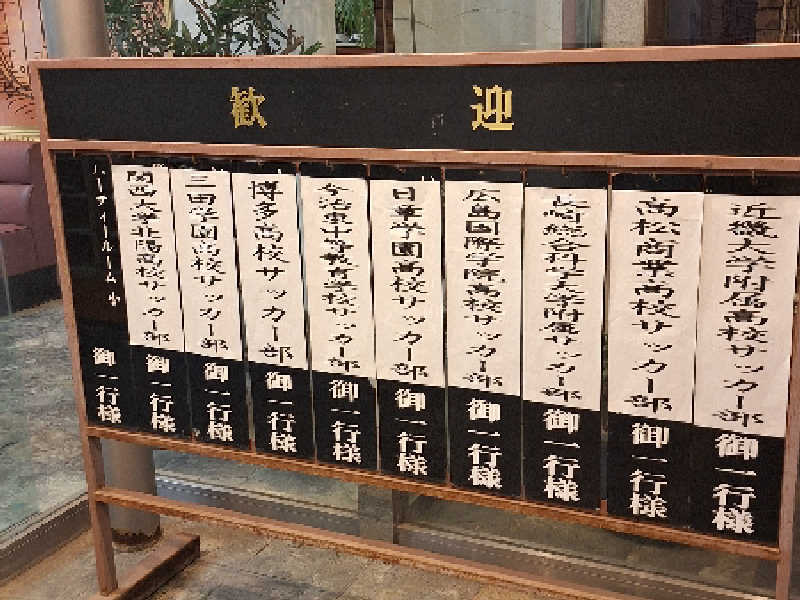 歓迎
近畿大学附属高校サッカー部 御一行様
高松商業高校サッカー部 御一行様
長崎総合科学大学附属サッカー部 御一行様
広島国際学院高校サッカー部 御一行様
日章学園高校サッカー部 御一行様
今治東中等教育学校サッカー部 御一行様
博多高校サッカー部 御一行様
三田学園高校サッカー部 御一行様
関西大学北陽高校サッカー部 御一行様
パーティールーム 御一行様